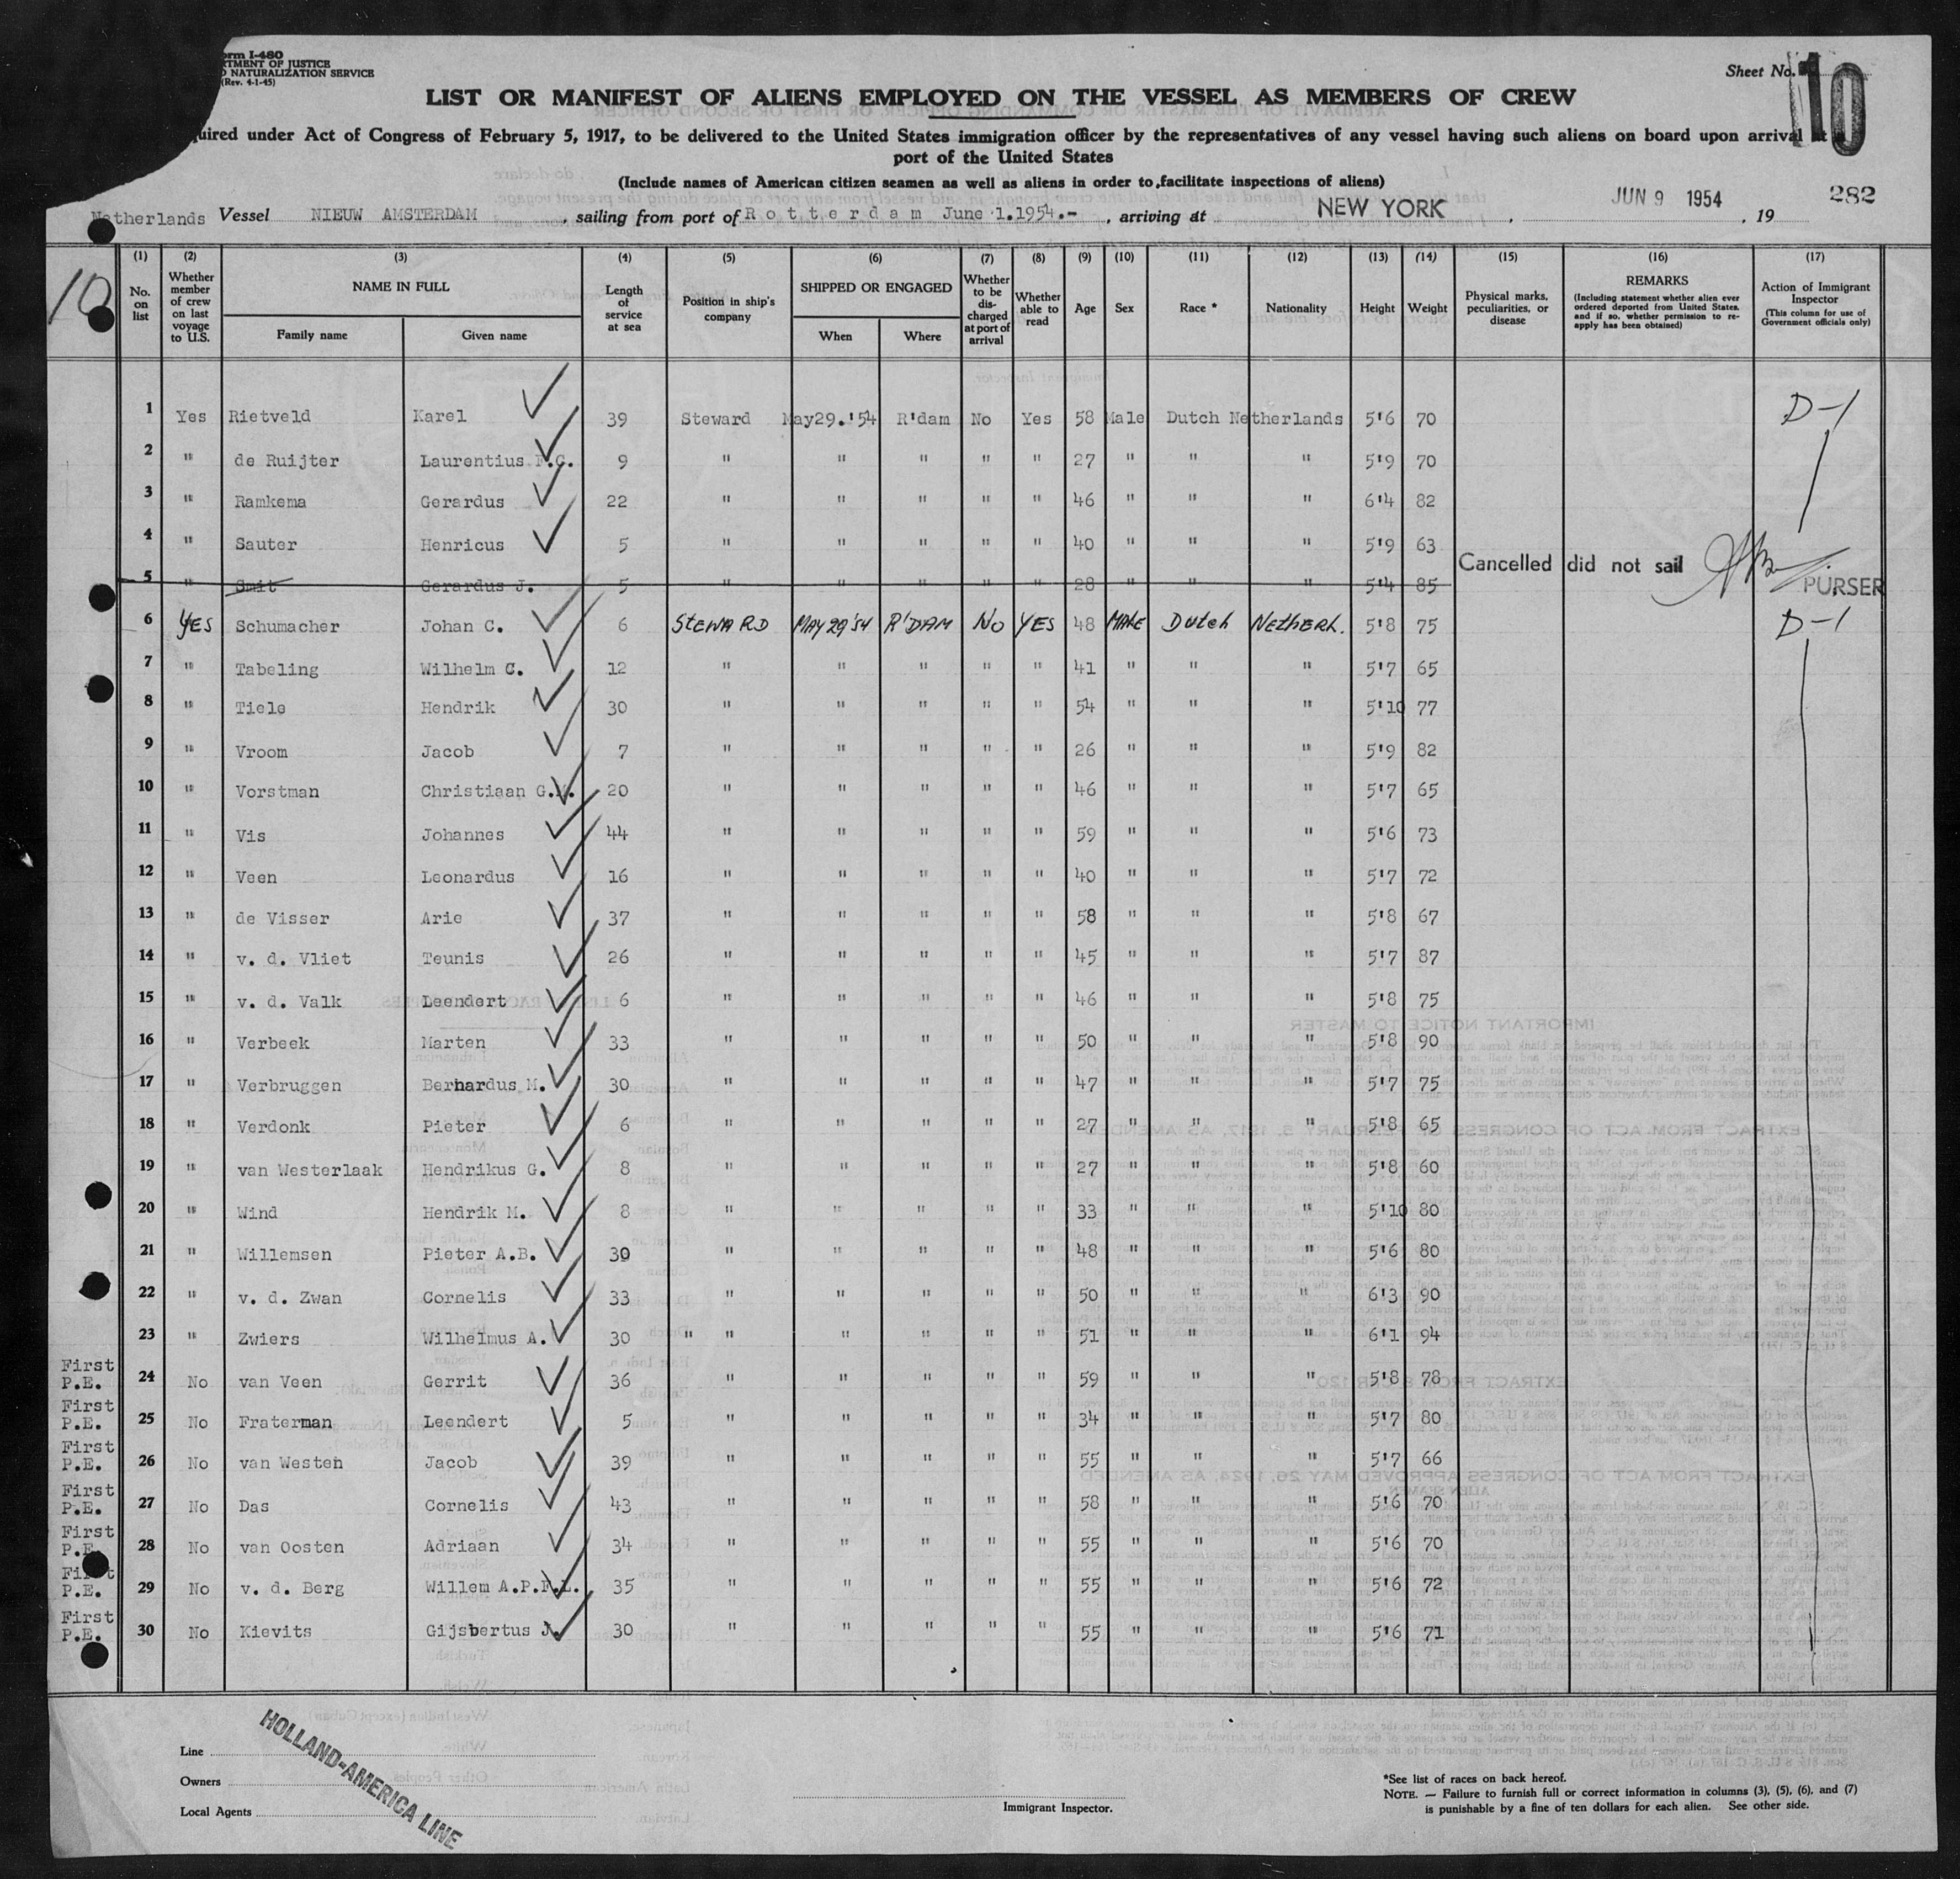 orm I-480
RTMENT OF JUSTICE
D NATURALIZATION SERVICE
(Rev. 4-1-45)
Sheet No. 10
LIST OR MANIFEST OF ALIENS EMPLOYED ON THE VESSEL AS MEMBERS OF CREW
uired under Act of Congress of February 5, 1917, to be delivered to the United States immigration officer by the representatives of any vessel having such aliens on board upon arrival at a
port of the United States
(Include names of American citizen seamen as well as aliens in order to facilitate inspections of aliens)
Netherlands Vessel NIEUW AMSTERDAM , sailing from port of Rotterdam June 1.1954.- , arriving at NEW YORK , JUN 9 1954 , 19 282
10
(1) (2) (3) (4) (5) (6) (7) (8) (9) (10) (11) (12) (13) (14) (15) (16) (17)
No. on list
Whether member of crew on last voyage to U.S.
NAME IN FULL
Family name Given name
Length of service at sea
Position in ship's company
SHIPPED OR ENGAGED
When Where
Whether to be discharged at port of arrival
Whether able to read
Age Sex Race * Nationality Height Weight
Physical marks, peculiarities, or disease
REMARKS
(Including statement whether alien ever ordered deported from United States, and if so, whether permission to re-apply has been obtained)
Action of Immigrant Inspector
(This column for use of Government officials only)
1 Yes Rietveld Karel 39 Steward May29.'54 R'dam No Yes 58 Male Dutch Netherlands 5'6 70 D-1
2 " de Ruijter Laurentius F.C. 9 " " " " " 27 " " " 5'9 70
3 " Ramkema Gerardus 22 " " " " " 46 " " " 6'4 82
4 " Sauter Henricus 5 " " " " " 40 " " " 5'9 63
5 " Smit Gerardus J. 5 " " " " " 28 " " " 5'4 85 Cancelled did not sail PURSER
6 YES Schumacher Johan C. 6 STEWARD MAY 29'54 R'DAM NO YES 48 MALE Dutch NETHERL. 5'8 75 D-1
7 " Tabeling Wilhelm C. 12 " " " " " 41 " " " 5'7 65
8 " Tiele Hendrik 30 " " " " " 54 " " " 5'10 77
9 " Vroom Jacob 7 " " " " " 26 " " " 5'9 82
10 " Vorstman Christiaan G.M. 20 " " " " " 46 " " " 5'7 65
11 " Vis Johannes 44 " " " " " 59 " " " 5'6 73
12 " Veen Leonardus 16 " " " " " 40 " " " 5'7 72
13 " de Visser Arie 37 " " " " " 58 " " " 5'8 67
14 " v. d. Vliet Teunis 26 " " " " " 45 " " " 5'7 87
15 " v. d. Valk Leendert 6 " " " " " 46 " " " 5'8 75
16 " Verbeek Marten 33 " " " " " 50 " " " 5'8 90
17 " Verbruggen Bernardus M. 30 " " " " " 47 " " " 5'7 75
18 " Verdonk Pieter 6 " " " " " 27 " " " 5'8 65
19 " van Westerlaak Hendrikus G. 8 " " " " " 27 " " " 5'8 60
20 " Wind Hendrik M. 8 " " " " " 33 " " " 5'10 80
21 " Willemsen Pieter A.B. 30 " " " " " 48 " " " 5'6 80
22 " v. d. Zwan Cornelis 33 " " " " " 50 " " " 6'3 90
23 " Zwiers Wilhelmus A. 30 " " " " " " 51 " " " 6'1 94
First P.E. 24 No van Veen Gerrit 36 " " " " " 59 " " " 5'8 78
First P.E. 25 No Fraterman Leendert 5 " " " " " 34 " " " 5'7 80
First P.E. 26 No van Westen Jacob 39 " " " " " 55 " " " 5'7 66
First P.E. 27 No Das Cornelis 43 " " " " " 58 " " " 5'6 70
First P.E. 28 No van Oosten Adriaan 34 " " " " " 55 " " " 5'6 70
First P.E. 29 No v. d. Berg Willem A.P.F.L. 35 " " " " " 55 " " " 5'6 72
First P.E. 30 No Kievits Gijsbertus J. 30 " " " " " 55 " " " 5'6 71
Line
Owners
Local Agents
HOLLAND-AMERICA LINE
Immigrant Inspector.
*See list of races on back hereof.
NOTE. — Failure to furnish full or correct information in columns (3), (5), (6), and (7)
is punishable by a fine of ten dollars for each alien. See other side.